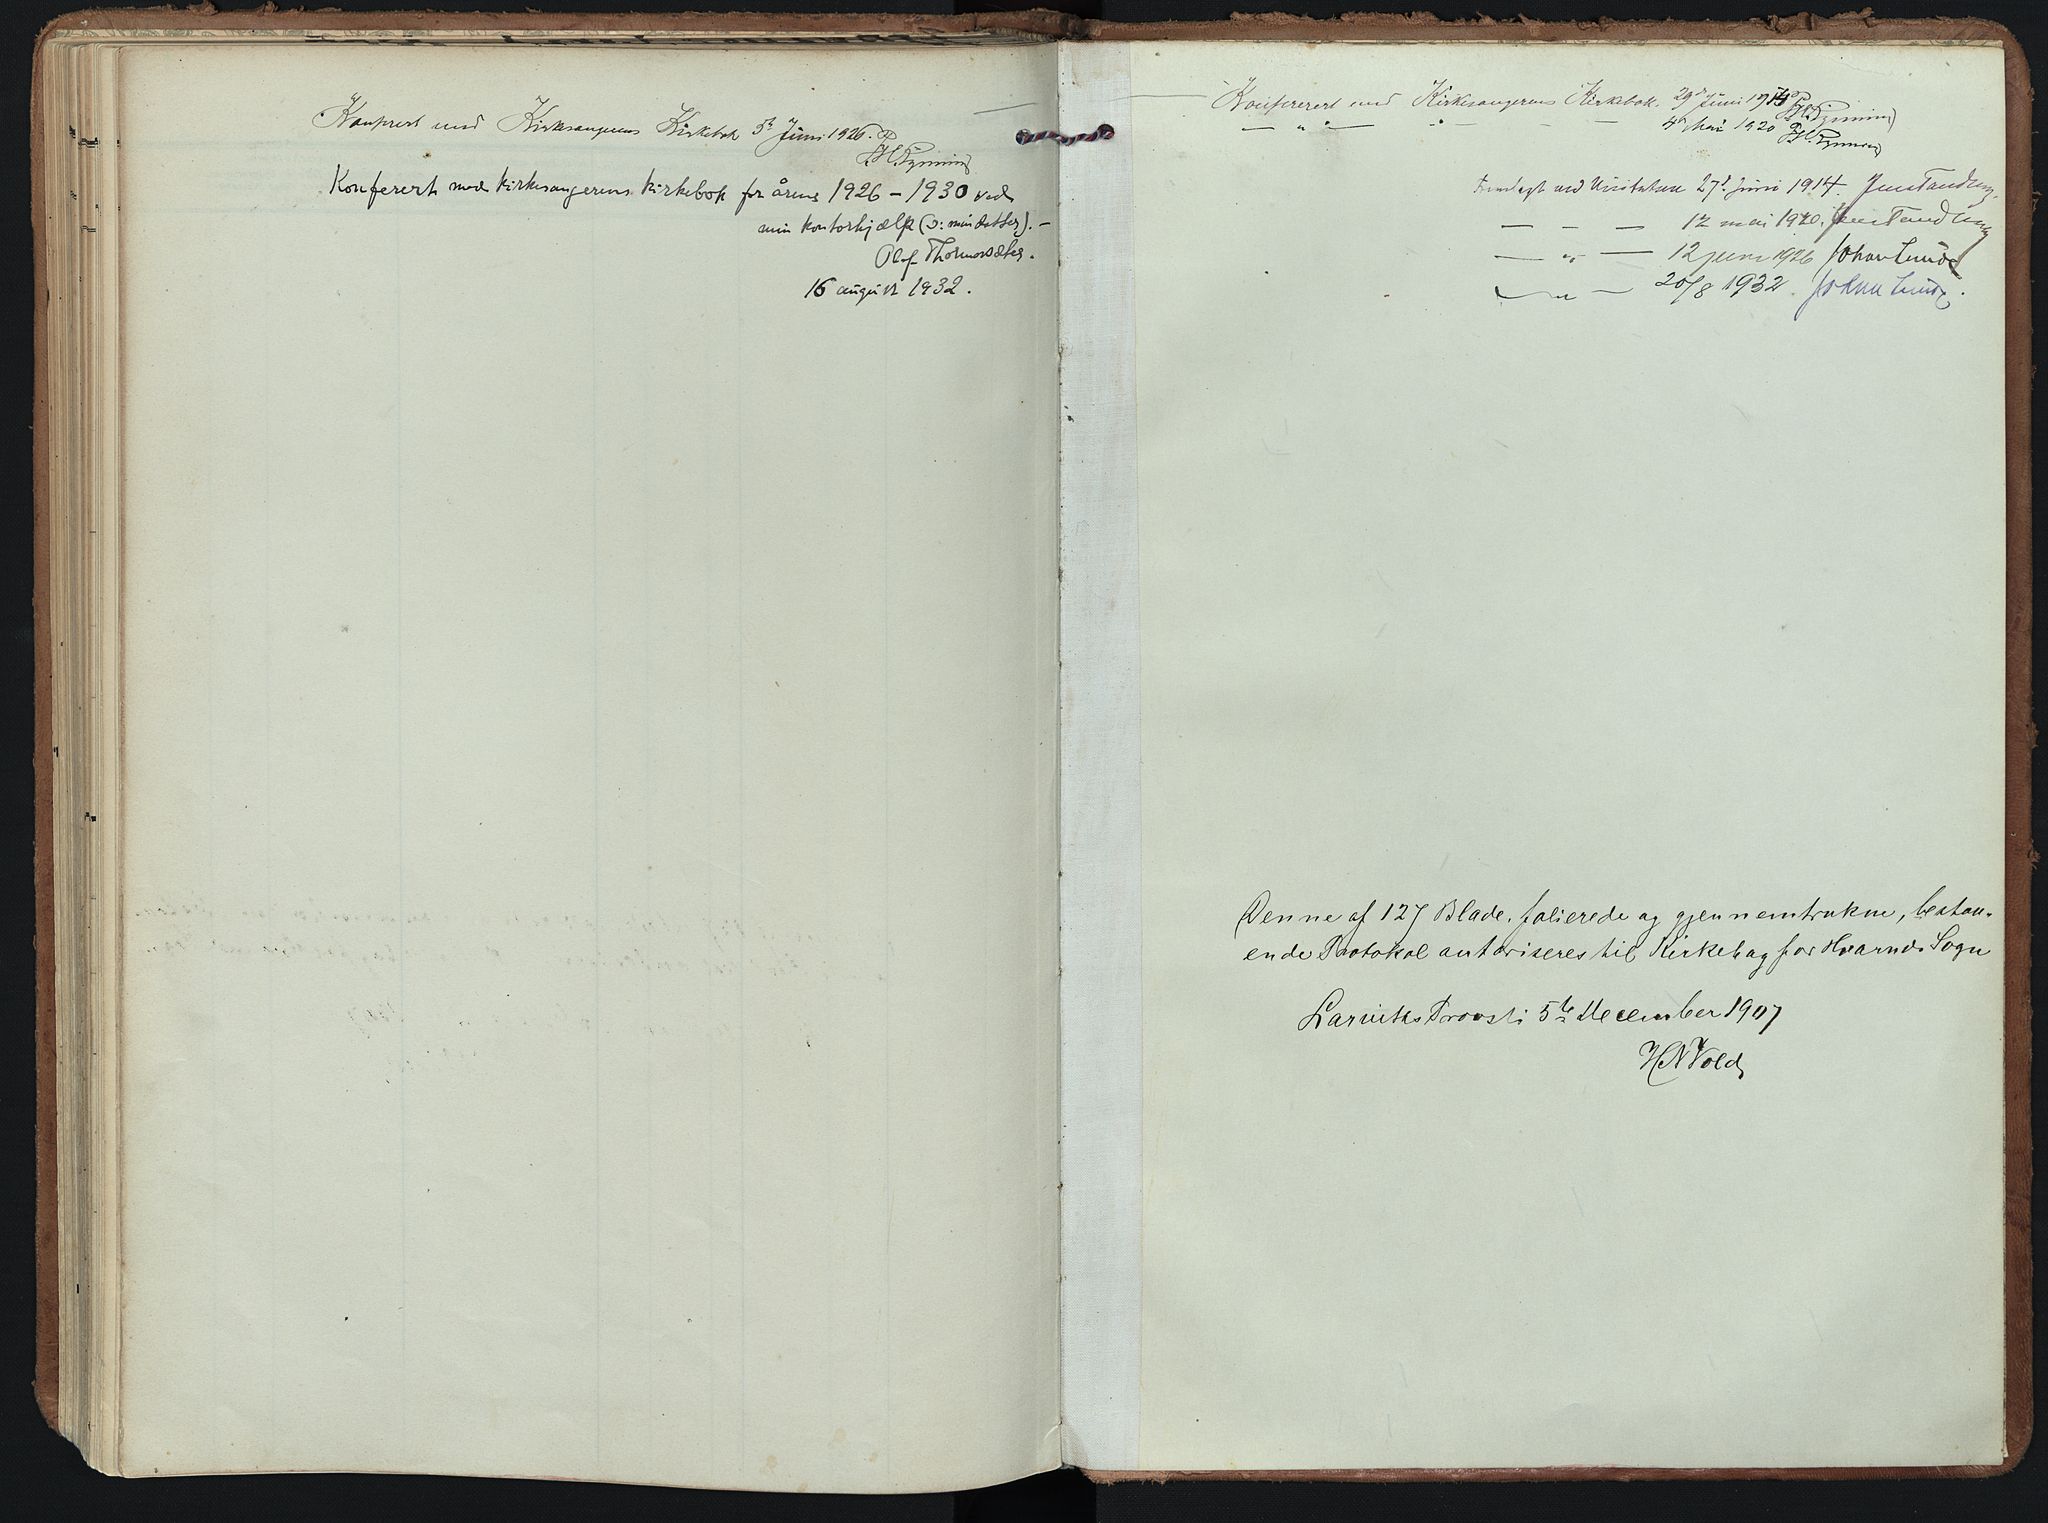 Konferert med Kirkesangerens Kirkebok 5te Juni 1926.
Konferert med kirkesangerens kirkebok for årene 1926 – 1930 ved
min kontorhjælp (ɔ: min datter). –
Olaf
16 august 1932.
Konfererert med Kirkesangerens Kirkebok. 29de Juni 1914
— " — " — — 4de Mai 1920
Fremlagt ved Visitatsen 27de juni 1914. Jens Tandberg
— — — 12 mai 1920. Jens Tandberg
— " — 12 juni 1926 Johan Lunde
— " — 20/8 1932 Johan Lunde.
Denne af 127 Blade, folierede og gjennemtrukne, bestaa-
ende Protokol autoriseres til Kirkebog for Hvarnes Sogn
Larviks Provsti 5te December 1907
H N Vold